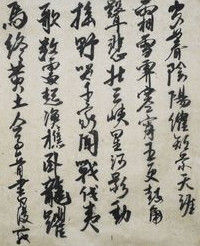 歲暮陰陽催短景天涯
霜雪霽寒宵五更鼓角
聲悲壯三峽星河影動
搖野哭千家聞戰伐夷
歌數處起漁樵臥龍躍
馬終黃土人事音書漫寂